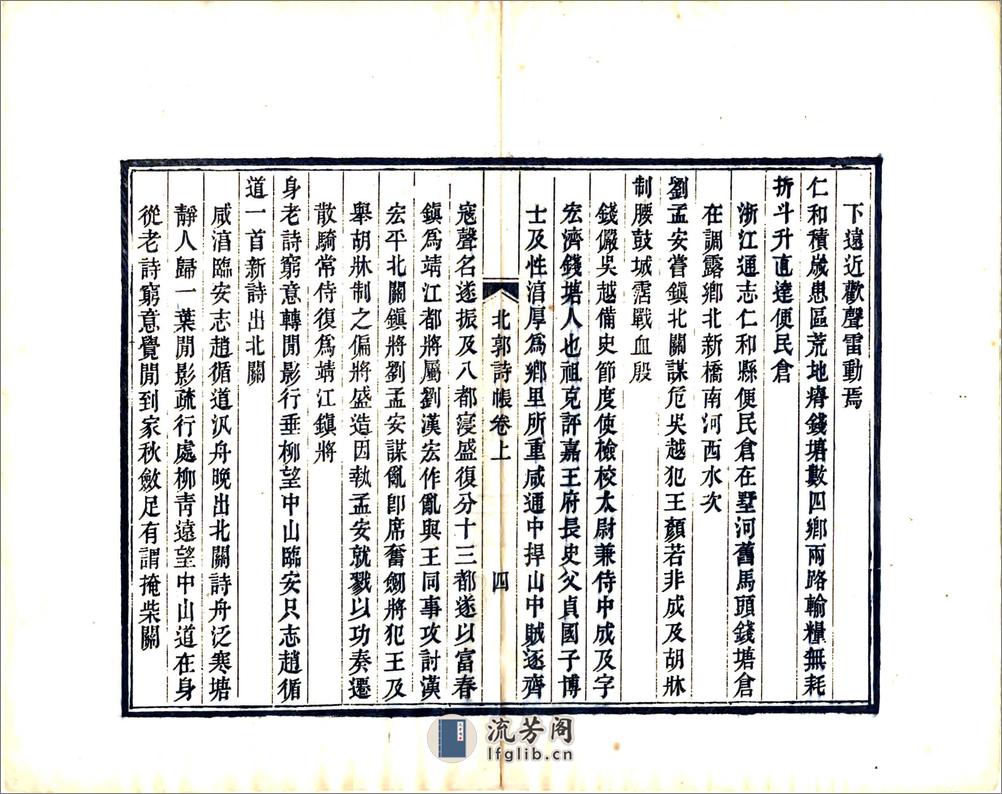 下遠近歡聲雷動焉
仁和積歲患區荒地瘠錢塘數四鄉兩路輸糧無耗
折斗升直達便民倉
浙江通志仁和縣便民倉在墅河舊馬頭錢塘倉
在調露鄉北新橋南河西水次
劉孟安嘗鎮北關謀危吳越犯王顏若非成及胡牀
制腰鼓城霑戰血殷
錢儼吳越備史節度使檢校太尉兼侍中成及字
宏濟錢塘人也祖克評嘉王府長史父貞國子博
士及性淯厚爲鄉里所重咸通中捍山中賊逐齊
北郭詩帳卷上
四
寇聲名遂振及八都寖盛復分十三都遂以富春
鎮爲靖江都將屬劉漢宏作亂與王同事攻討漢
宏平北關鎮將劉孟安謀亂卽席奮劒將犯王及
舉胡牀制之偏將盛造因執孟安就戮以功奏遷
散騎常侍復爲靖江鎮將
身老詩窮意轉閒影行垂柳望中山臨安只志趙循
道一首新詩出北關
咸淯臨安志趙循道汎舟晚出北關詩舟泛寒塘
靜人歸一葉閒影疏行處柳靑遠望中山道在身
從老詩窮意覺閒到家秋斂足有謂掩柴關
流芳阁
lfglib.cn